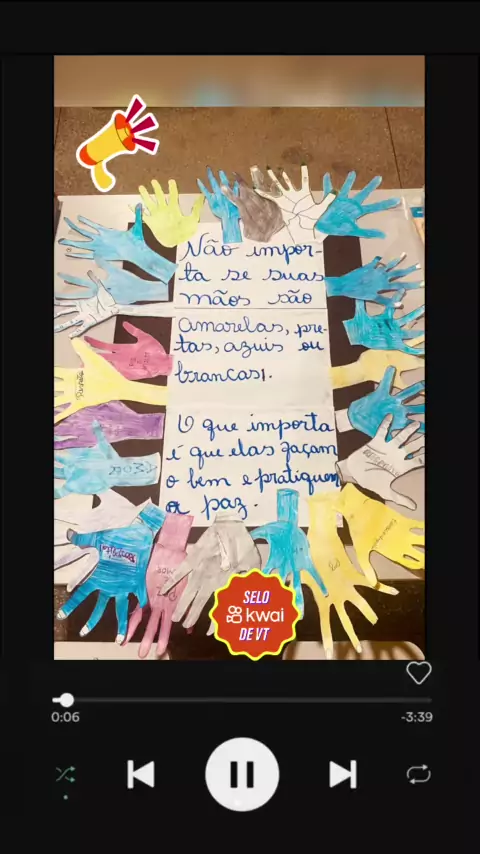 Não impor-
ta se suas
mãos são
amarelas, pre-
tas, azuis ou
brancas!.
O que importa
é que elas façam
o bem e pratiquem
a paz.
SELO
kwai
DE VT
0:06
-3:39